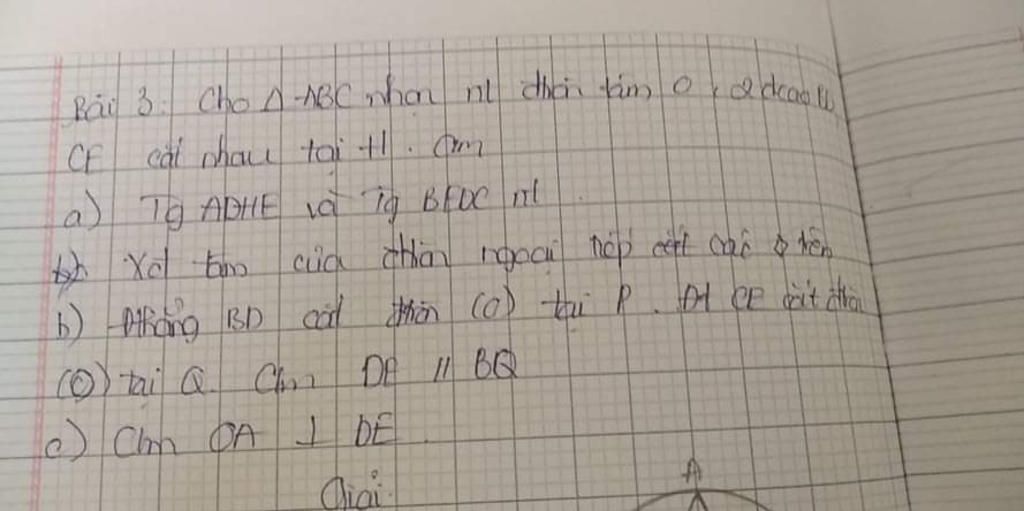 Bài 3: Cho Δ ABC nhọn nt đtròn tâm O, 2 đcao
CE cắt nhau tại H. Cm
a) Tg ADHE và Tg BEDC nt
Xđ tâm của đtròn ngoại tiếp các tg trên
b) Đthẳng BD cắt đtròn (O) tại P. Đt CE cắt đtròn
(O) tại Q. Cm DE // BQ
c) Cm OA ⊥ DE
Giải:
A